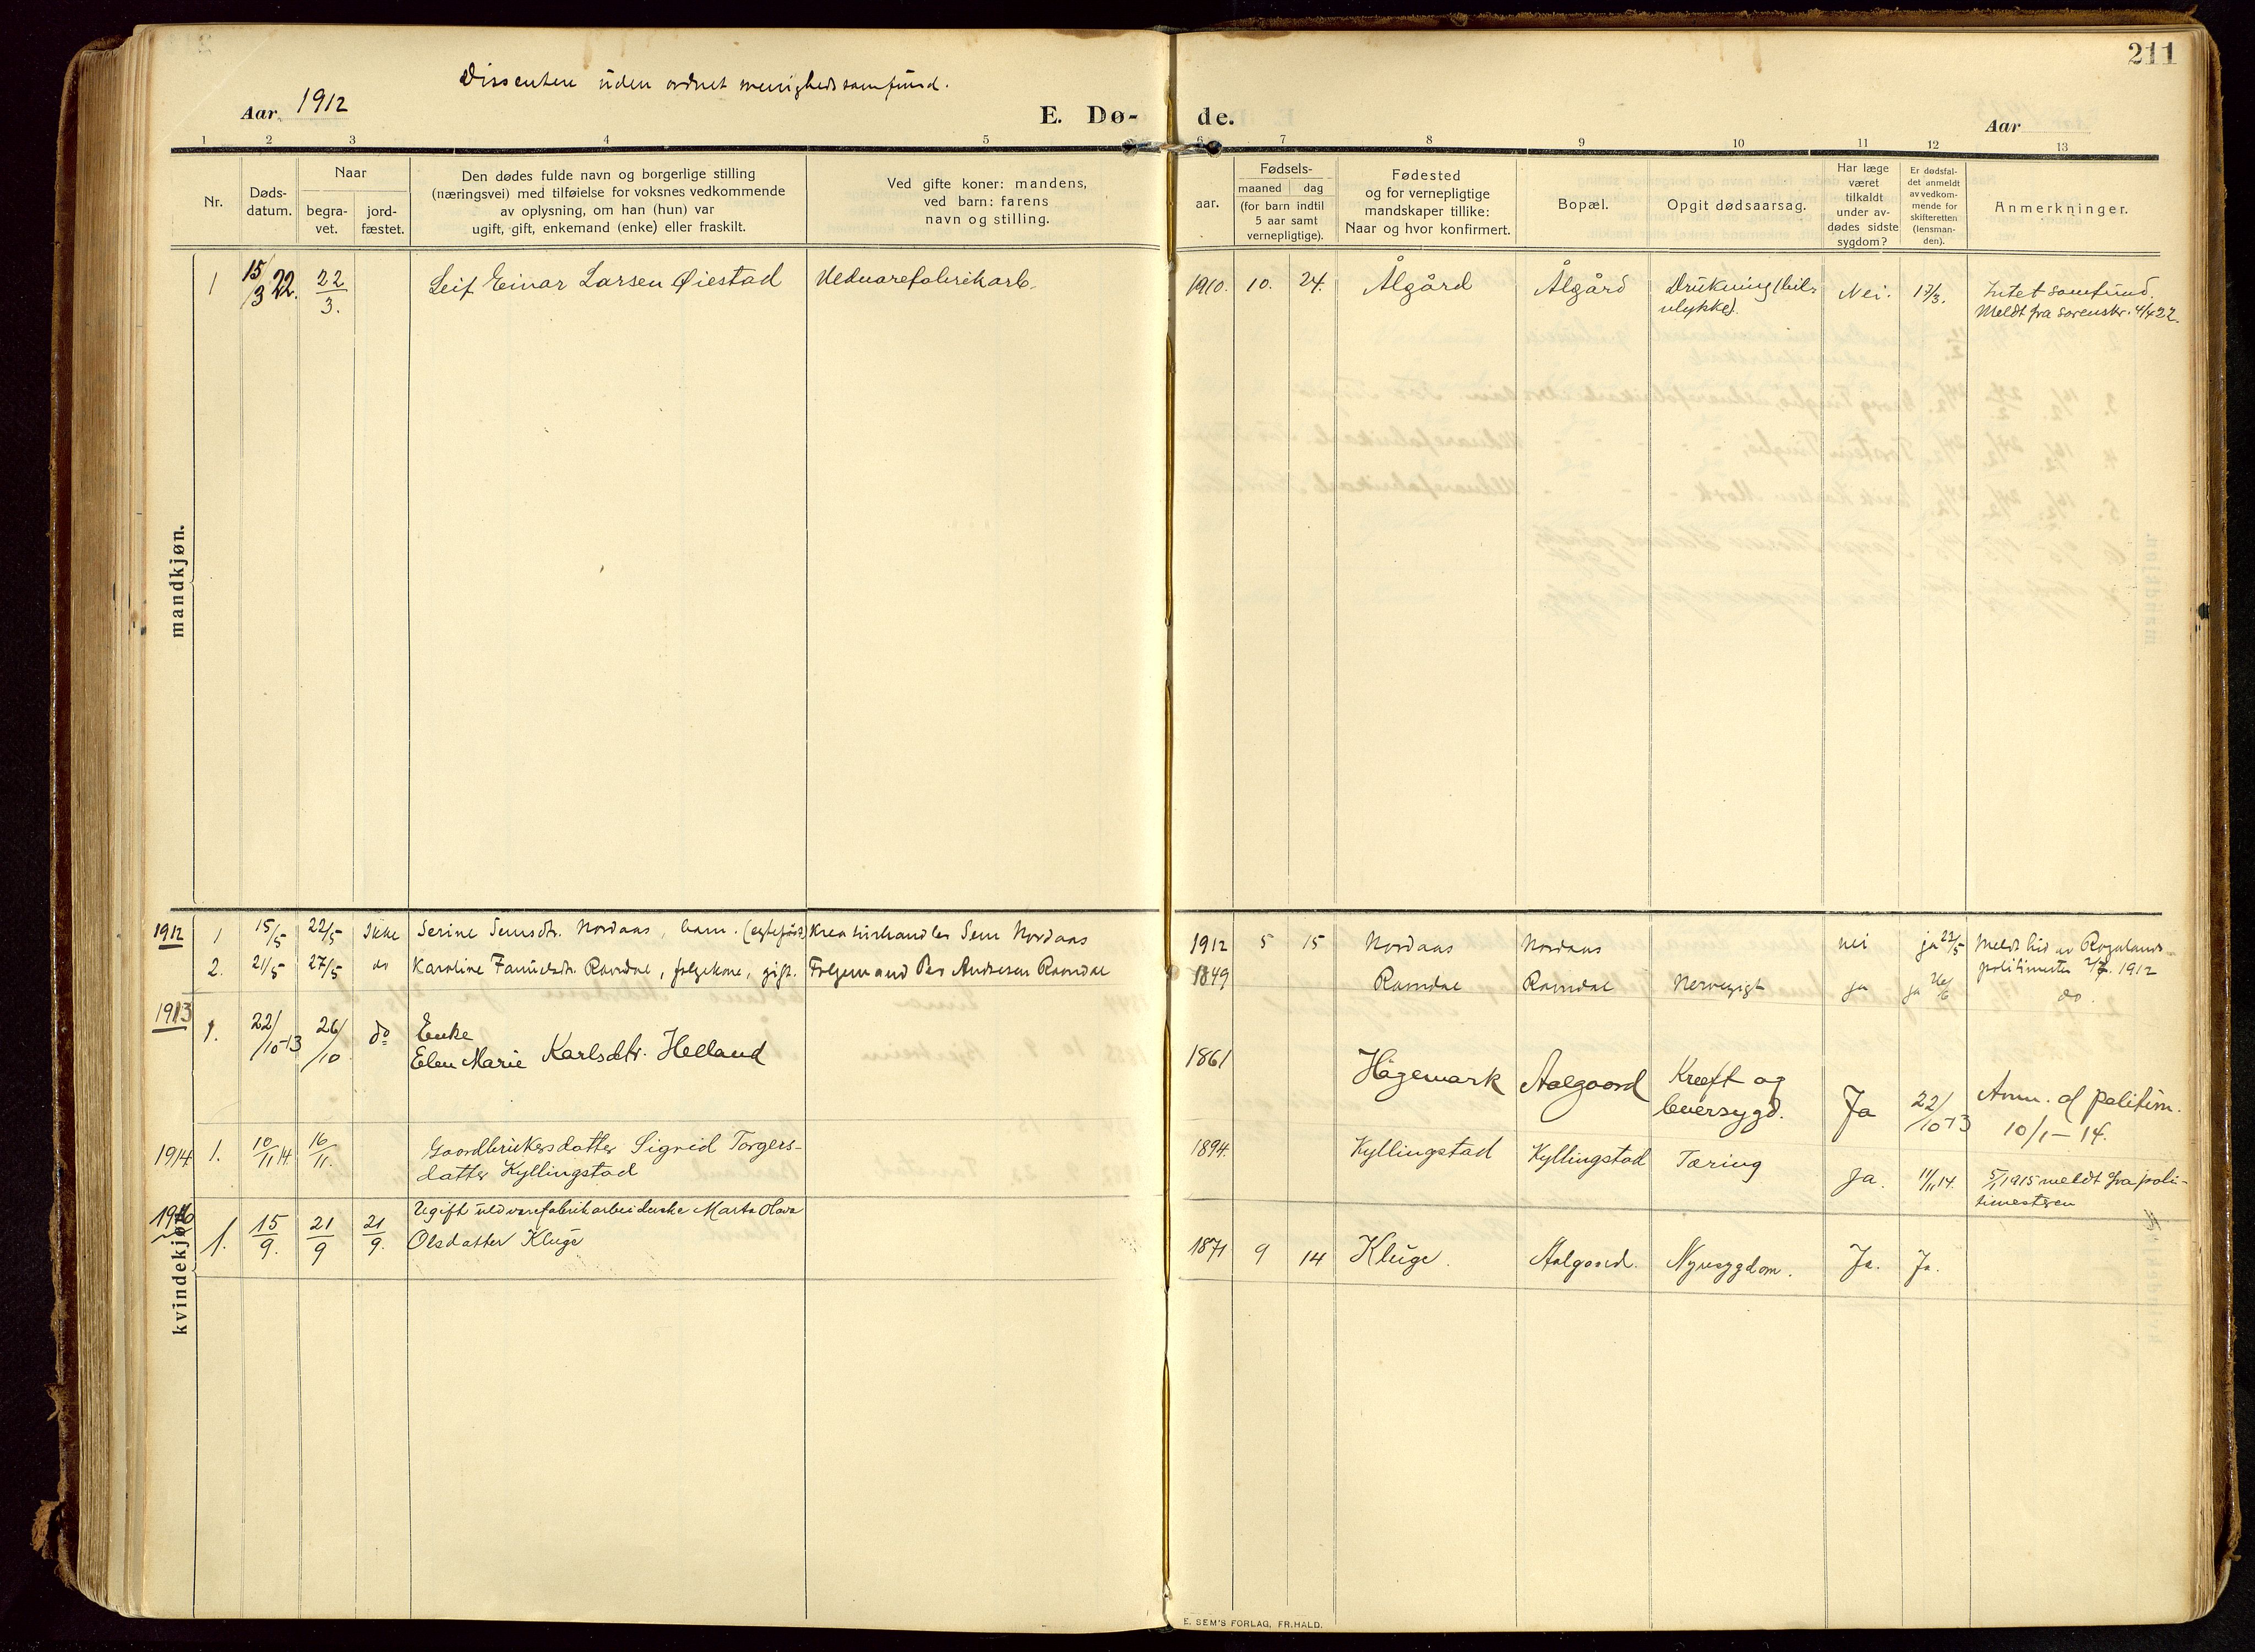 211
Dissentere uden ordnet menighedssamfund.
Aar 1912
E. Dø- de.
Aar
1 2 3 4 5 6 7 8 9 10 11 12 13
Nr.
Døds-
datum.
Naar
begra-
vet.
jord-
fæstet.
Den dødes fulde navn og borgerlige stilling
(næringsvei) med tilføielse for voksnes vedkommende
av oplysning, om han (hun) var
ugift, gift, enkemand (enke) eller fraskilt.
Ved gifte koner: mandens,
ved barn: farens
navn og stilling.
Fødsels-
aar.
maaned dag
(for barn indtil
5 aar samt
vernepligtige).
Fødested
og for vernepligtige
mandskaper tillike:
Naar og hvor konfirmert.
Bopæl.
Opgit dødsaarsag.
Har læge
været
tilkaldt
under av-
dødes sidste
sygdom?
Er dødsfal-
det anmeldt
av vedkom-
mende for
skifteretten
(lensman-
den).
Anmerkninger.
mandkjøn.
1 15/3 22. 22/3. Leif Einar Larsen Øiestad Uldvarefabrikarb. 1910. 10. 24. Ålgård Ålgård Drukning (bil- Nei. 17/3. Intet samfund.
ulykke). Meldt fra sorenskr. 4/4 22.
kvindekjøn.
1912 1 15/5 22/5 Ikke Serine Semsdtr. Nordaas, barn. (egtefødt) Kreaturhandler Sem Nordaas 1912 5 15 Nordaas Nordaas nei ja 22/5 Meldt hid av Rogalands
politimester 1912
2. 21/5 27/5 do Karoline Danielsdtr. Ravndal, folgekone, gift. Folgemand Per Andersen Ravndal 1849 Ravndal Ravndal Nervegigt ja ja 26/6 do.
1913 1. 22/10-13 26/10 do Enke
Elen Marie Karlsdtr. Helland 1861 Hägemark Aalgaard Kreeft og
leversygd. Ja 22/10-13 Anm. af politim.
10/1-14.
1914 1. 10/11 14 16/11. Gaardbrukersdatter Sigrid Torgers-
datter Kyllingstad 1894. Kyllingstad Kyllingstad Tæring Ja. 11/11 14. 5/1 1915 meldt fra poli-
timesteren
1916 1. 15/9. 21/9 21/9. Ugift uldvarefabrikarbeiderske Marta Olava
Olsdatter Kluge 1871 9 14 Kluge. Aalgaard. Nyresygdom. Ja. Ja.
E. SEM'S FORLAG, FR.HALD.